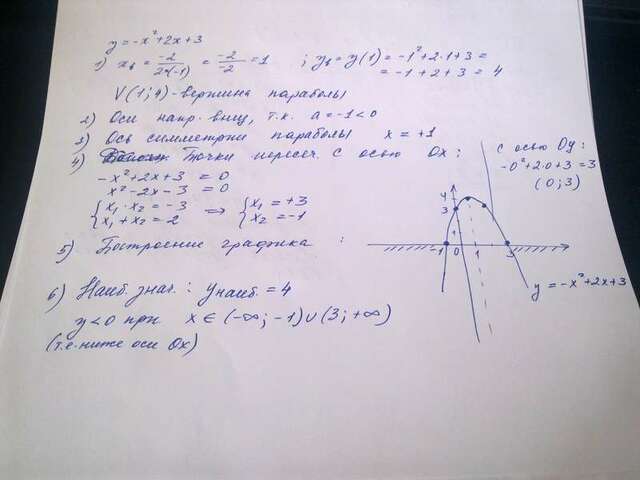 y = -x² + 2x + 3
1) x₆ = -2/2·(-1) = -2/-2 = 1 ; y₆ = y(1) = -1² + 2·1 + 3 =
= -1 + 2 + 3 = 4
V(1; 4) - вершина параболы
2) Оси напр. вниз, т.к. a = -1 < 0
3) Ось симметрии параболы x = +1
4) Точки пересеч. с осью Ox:
-x² + 2x + 3 = 0
x² - 2x - 3 = 0
{x₁ · x₂ = -3
x₁ + x₂ = 2 ⇒ {x₁ = +3
x₂ = -1
с осью Oy:
-0² + 2·0 + 3 = 3
(0; 3)
5) Построение графика :
4
3
1
-1 0 1 3
y = -x² + 2x + 3
6) Наиб. знач.: yнаиб. = 4
y < 0 при x ∈ (-∞; -1) ∪ (3; +∞)
(т.е. ниже оси Ox)